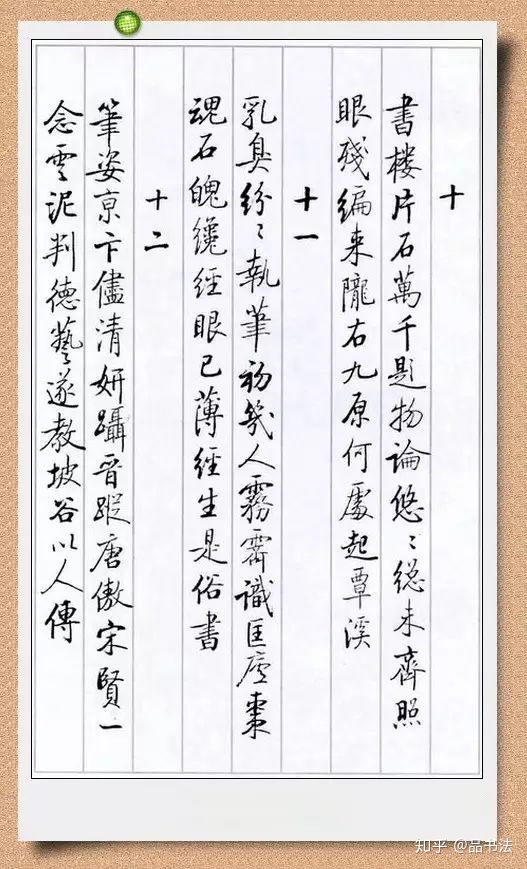 十
書楼片石萬千題物論悠〻總未齊照
眼殘編来隴右九原何處起覃溪
十一
乳臭紛〻執筆初幾人霧霽識匡廬棗
魂石魄纔經眼已薄經生是俗書
十二
筆姿京卞儘清妍躡晋踪唐傲宋賢一
念雲泥判德藝遂教坡谷以人傳
知乎 @品书法